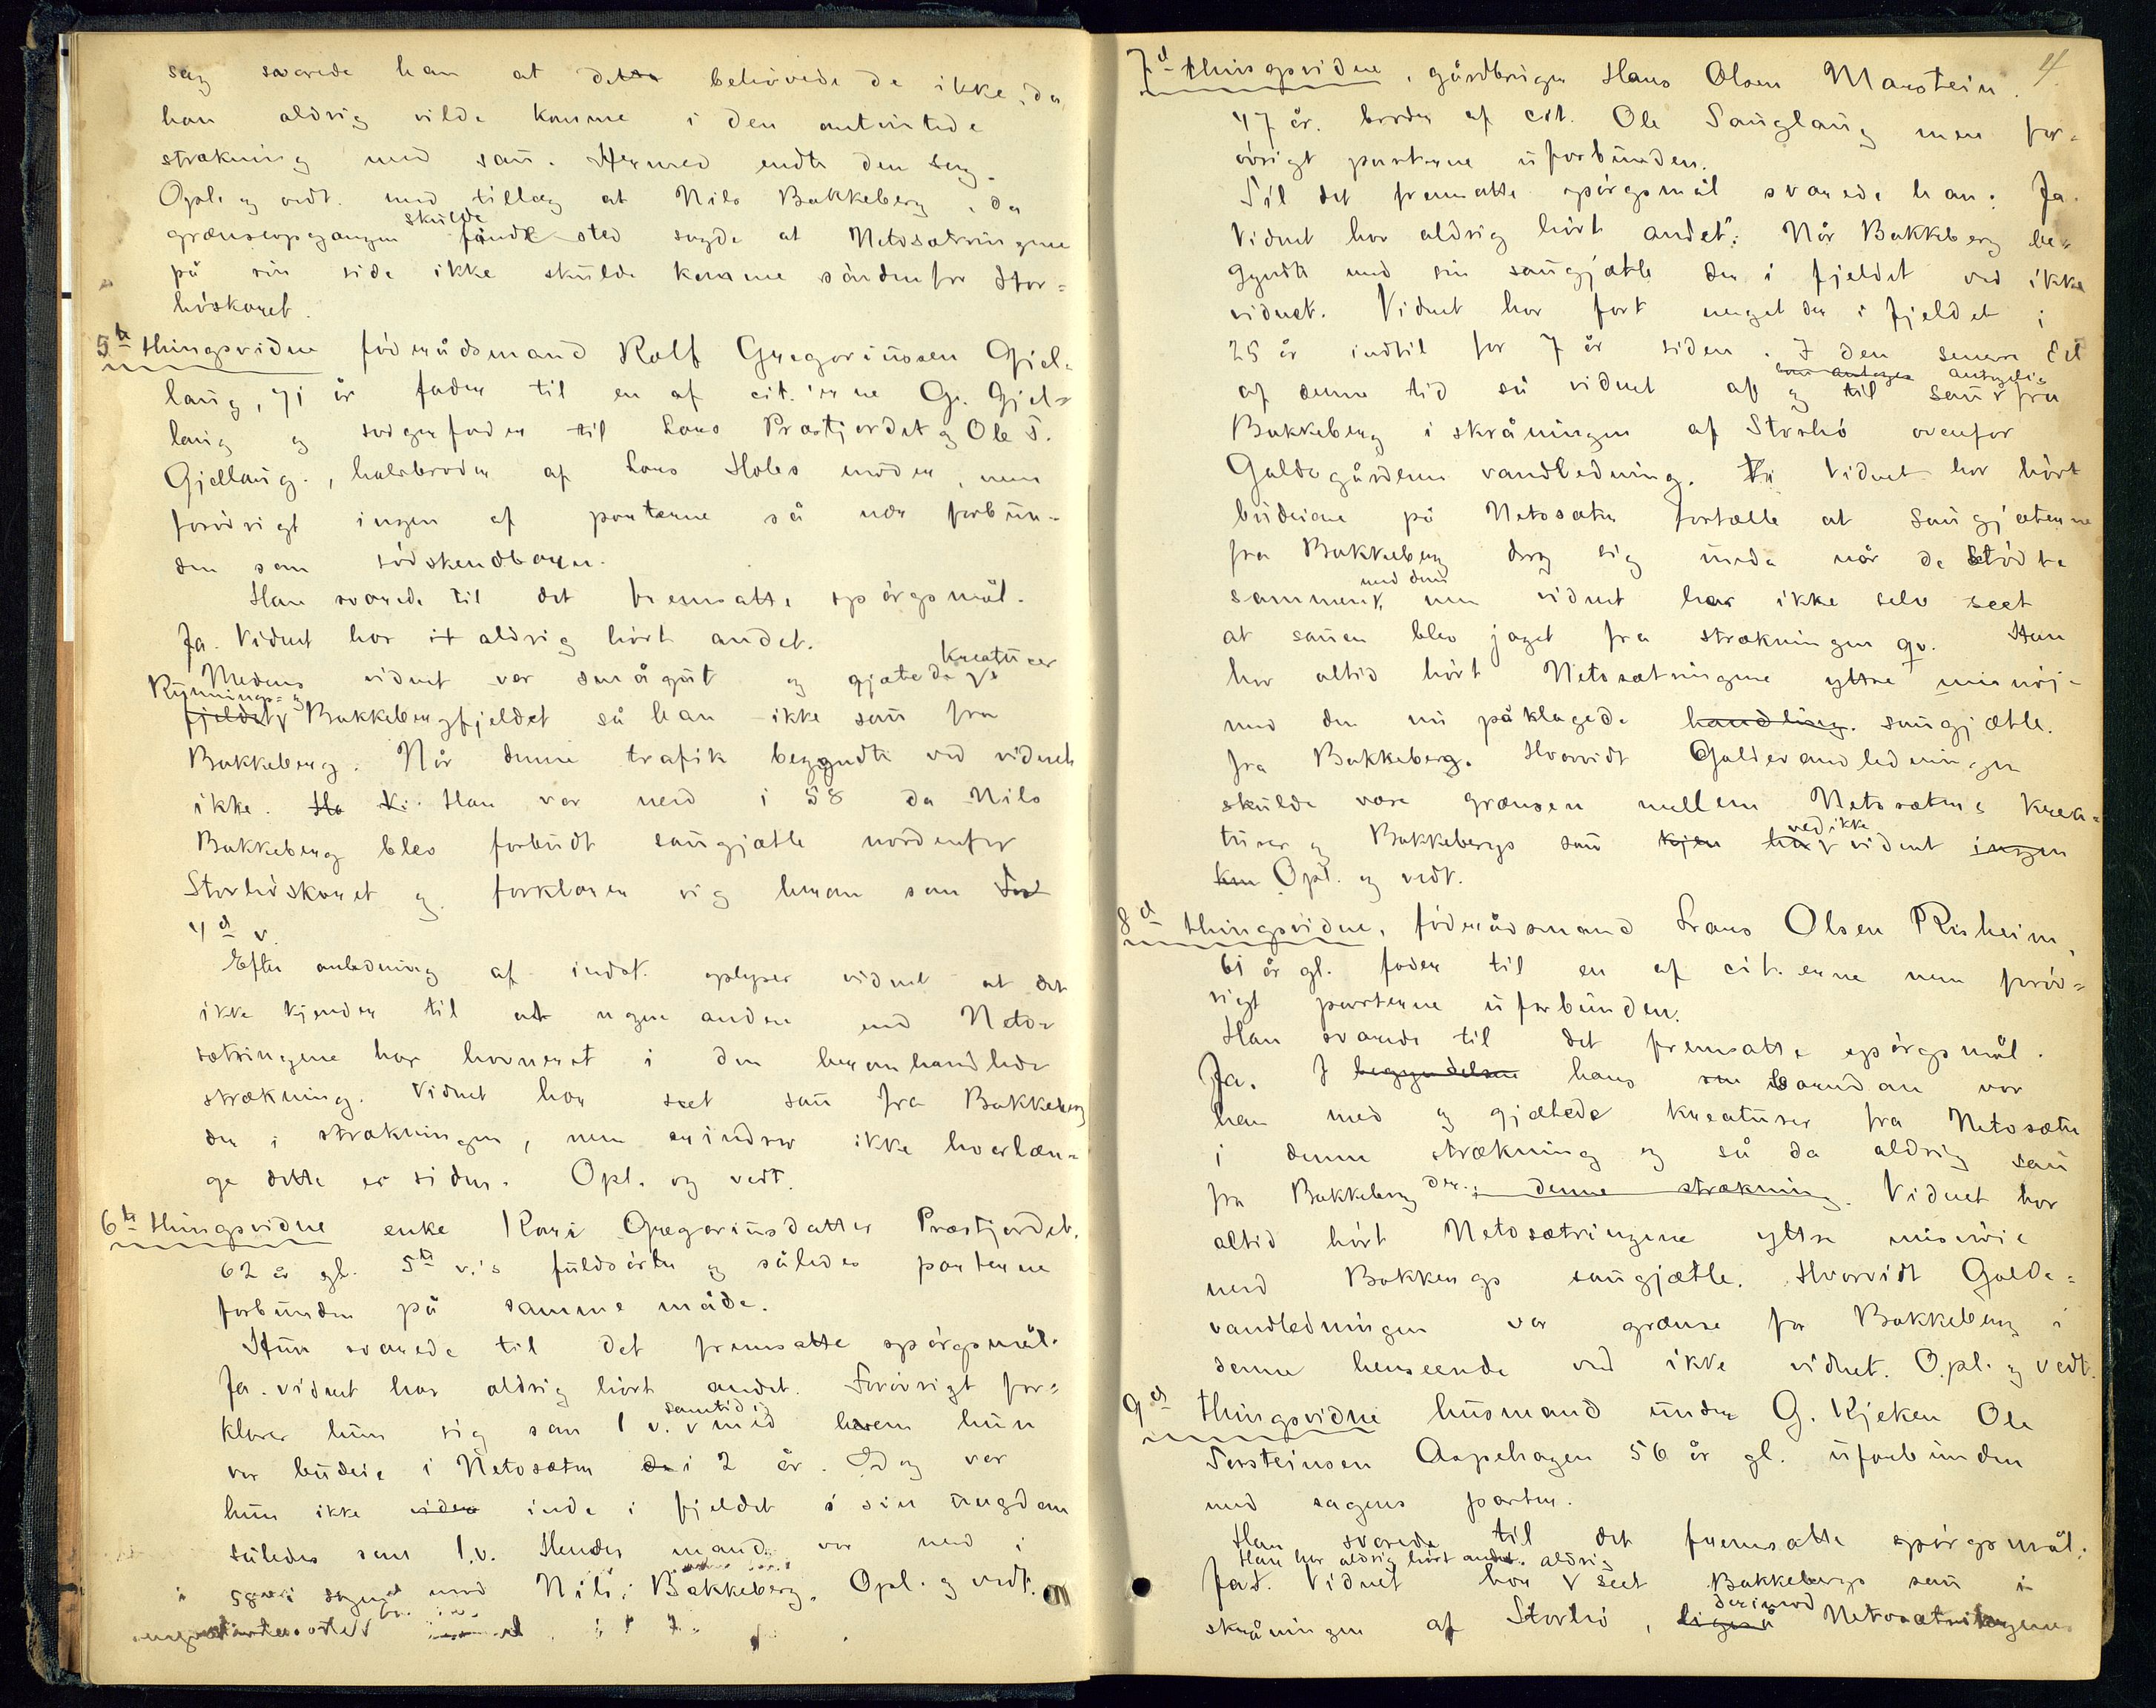 sag svarede han at dette behövede de ikke, da
han aldrig vilde komme i den omtvistede
strækning med sau. Hermed endte den sag.
Opl. og vedt. med tillæg at Nils Bakkeberg, da
grænseopgangen skulde finde sted sagde at Netosætringene
på sin side ikke skulde komme söndenfor Stor=
höskaret.
5te thingsvidne föderådsmand Rolf Gregoriussen Gjel=
laug, 71 år fader til en af cit.'erne G. Gjel=
laug og svigerfader til Lars Præstjordet og Ole T.
Gjellaug, halvbroder af Lars Holes moder, men
forövrigt ingen af parterne så nær forbun=
den som södskendbarn.
Han svarede til det fremsatte spörgsmål.
Ja. Vidnet har aldrig hört andet.
Medens vidnet var smågut og gjætede kreaturer
i Rynnings= og
fjeldet Bakkebergfjeldet så han ikke sau fra
Bakkeberg. Når denne trafik begyndte ved vidnet
ikke. Ha V. Han var med i 58 da Nils
Bakkeberg blev forbudt saugjætle nordenfor
Storhöskaret og forklarer sig herom som
4de v.
Efter anledning af indst. oplyser vidnet at det
ikke kjender til at nogen anden end Neto=
sætringene har havneret i den heromhandlede
strækning. Vidnet har seet sau fra Bakkeberg
der i strækningen, men erindrer ikke hvorlæn=
ge dette er siden. Opl. og vedt.
6te thingsvidne enke Kari Gregoriusdatter Præstjordet,
62 år gl. 5te v.'s fuldsöster og således parterne
forbunden på samme måde.
Hun svarede til det fremsatte spörgsmål.
Ja. vidnet har aldrig hört andet. Forövrigt for=
klarer hun sig som 1 v. samtidig med hvem hun
var budeie i Netosæter i 2 år. Dog var
hun ikke inde i fjeldet i sin ungdom
således som 1.v. Hendes mand var med i
Nils Bakkeberg. Opl. og vedt.
4
7de thingsvidne, gårdbruger Hans Olsen Marstein.
47 år. broder af cit. Ole Sauglaug men for=
övrigt parterne uforbunden.
Til det fremsatte spörgsmål svarede han: Ja.
Vidnet har aldrig hört andet. Når Bakkeberg be=
gyndte med sin saugjætle der i fjeldet ved ikke
vidnet. Vidnet har fart meget der i fjeldet i
25 år indtil for 7 år siden. I den senere del
af denne tid så vidnet af og til sau antagelig fra
Bakkeberg i skråningen af Storhö ovenfor
Galdegårdenes vandledning. Vidnet har hört
budeiene på Netosæter fortælle at saugjæterne
fra Bakkeberg drog sig unda når de stödte
sammen med dem men vidnet har ikke selv seet
at sauen blev jaget fra strækningen qv. Han
har altid hört Netosætringene yttre misnöi=
med den nu påklagede handling. saugjætle.
fra Bakkeberg. Hvorvidt Galdevandledningen
skulde være grænsen mellem Netosæterns krea=
turer og Bakkebergs sau ved ikke vidnet ingen
Opl. og vedt.
8de thingsvidne, föderådsmand Hans Olsen Risheim,
61 år gl. fader til en af cit.erne men foröv=
rigt parterne uforbunden.
Han svarede til det fremsatte spörgsmål.
Ja. I begyndelsen hans barndom var
han med og gjætede kreaturer fra Netosæter
i denne strækning og så da aldrig sau
fra Bakkeberg der. i denne strækning. Vidnet har
altid hört Netosætringene yttre misnöie
med Bakkebergs saugjætle. Hvorvidt Galde=
vandledningen var grænse for Bakkeberg i
denne henseende ved ikke vidnet. Opl. og vedt.
9de thingsvidne husmand under G. Kjeken Ole
Torsteinsen Aspehagen 56 år gl. uforbunden
med sagens parter.
Han svarede til det fremsatte spörgsmål:
Han har aldrig hört andet. aldrig
Ja. Vidnet har seet Bakkebergs sau i
skråningen af Storhö, ligeså derimod Netosætringenes